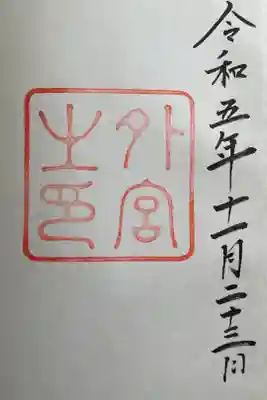 令和五年十一月二十三日
外宮
之印